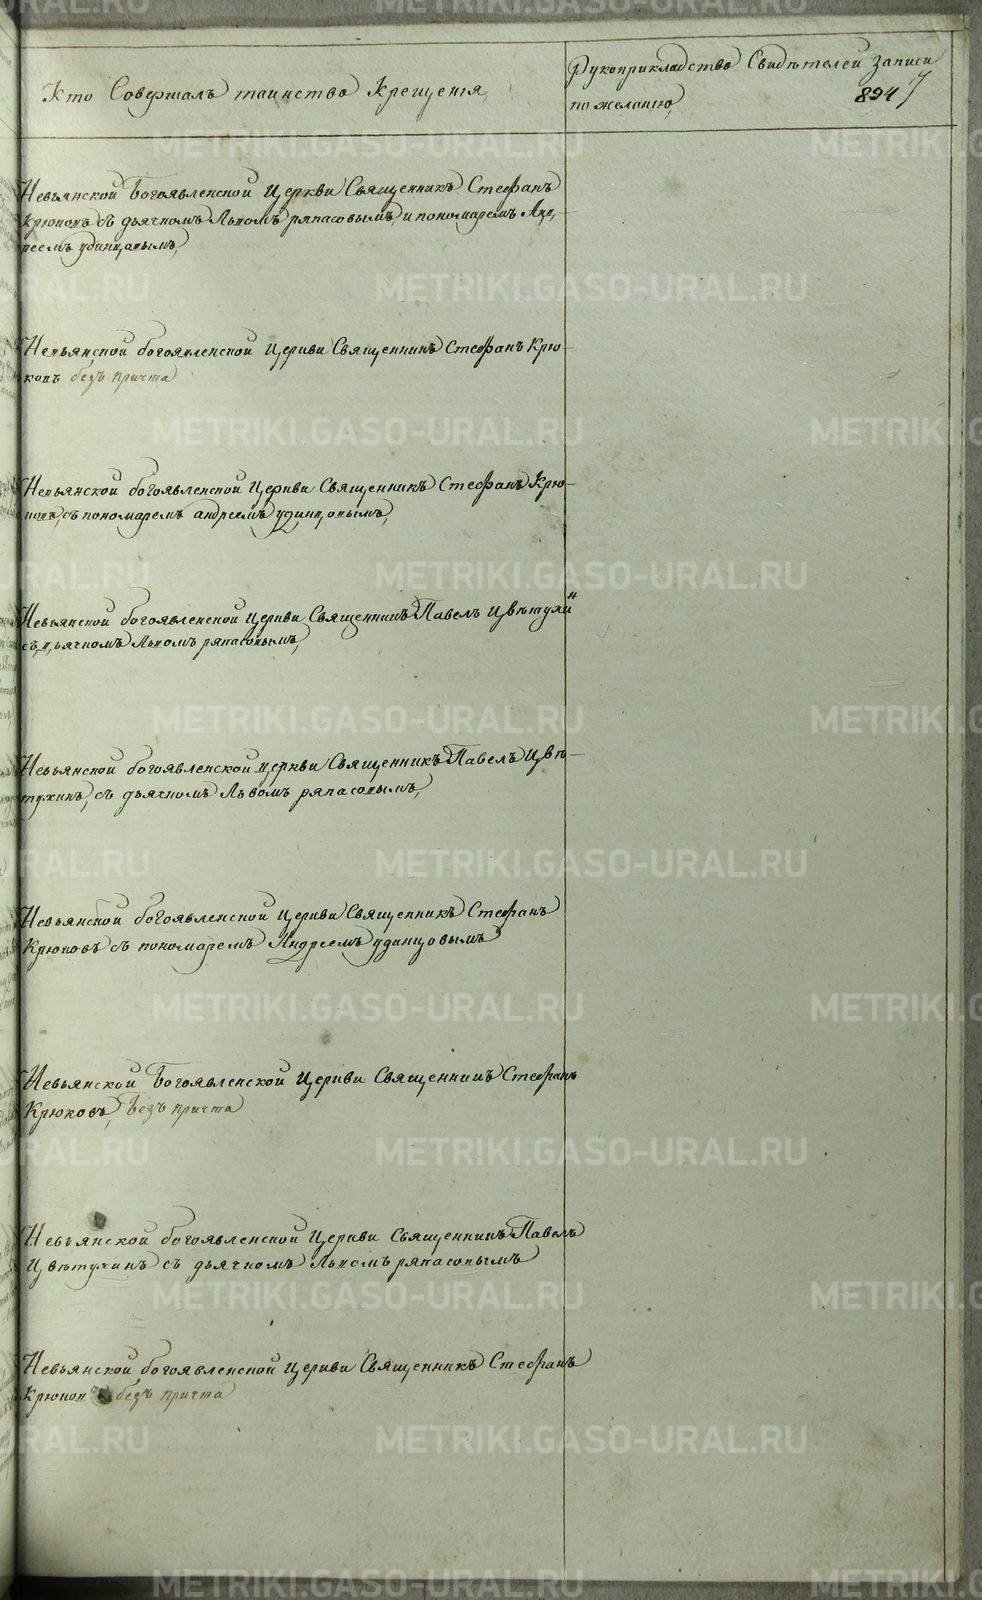 Кто Совершалъ таинство Крещенія,
Рукоприкладство Свидѣтелей записи
по желанію,
894
7
Невьянской Богоявленской Церкви Священникъ Стефанъ
Крюковъ съ дьячкомъ Львомъ ряпасовымъ, и пономаремъ Анд-
реемъ удинцовымъ,
Невьянской богоявленской Церкви Священникъ Стефанъ Крю-
ковъ безъ причта
Невьянской богоявленской Церкви Священникъ Стефанъ Крю-
ковъ, съ пономаремъ андреемъ удинцовымъ,
Невьянской богоявленской Церкви Священникъ Павелъ Цвѣтухин
съ дьячкомъ Львомъ ряпасовымъ,
Невьянской богоявленской церкви Священникъ Павелъ Цвѣ-
тухинъ, съ дьячкомъ Львомъ ряпасовымъ,
Невьянской богоявленской Церкви Священникъ Стефанъ
Крюковъ съ пономаремъ Андреемъ удинцовымъ
Невьянской Богоявленской Церкви Священникъ Стефанъ
Крюковъ, безъ причта
Невьянской богоявленской Церкви Священникъ Павелъ
Цвѣтухинъ съ дьячкомъ Львомъ ряпасовымъ
Невьянской богоявленской Церкви Священникъ Стефанъ
Крюковъ безъ причта
METRIKI.GASO-URAL.RU